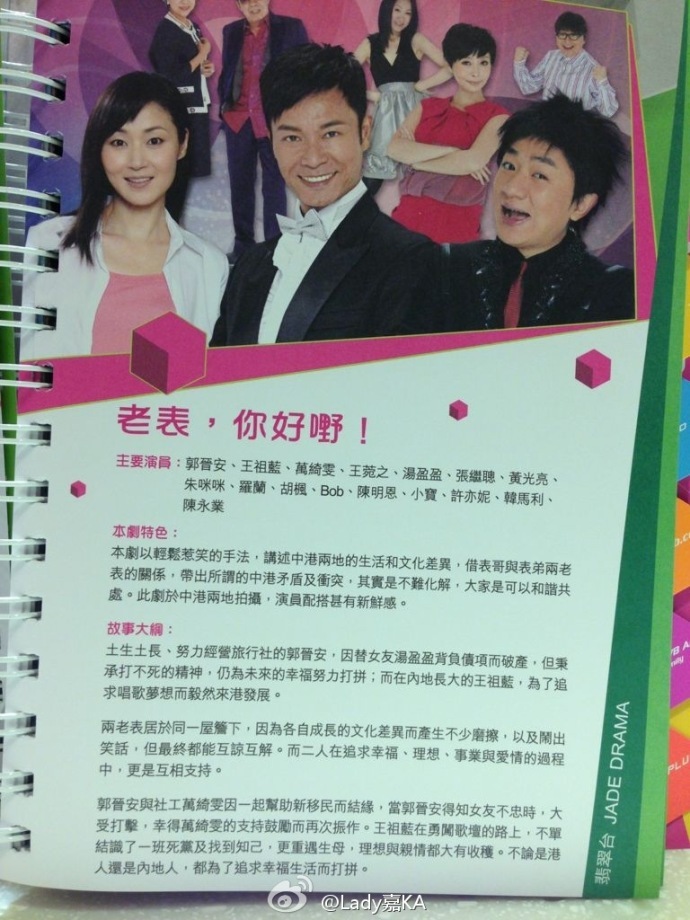 老表，你好嘢！
主要演員：郭晉安、王祖藍、萬綺雯、王菀之、湯盈盈、張繼聰、黃光亮、
朱咪咪、羅蘭、胡楓、Bob、陳明恩、小寶、許亦妮、韓馬利、
陳永業
本劇特色：
本劇以輕鬆惹笑的手法，講述中港兩地的生活和文化差異，借表哥與表弟兩老
表的關係，帶出所謂的中港矛盾及衝突，其實是不難化解，大家是可以和諧共
處。此劇於中港兩地拍攝，演員配搭甚有新鮮感。
故事大綱：
土生土長、努力經營旅行社的郭晉安，因替女友湯盈盈背負債項而破產，但秉
承打不死的精神，仍為未來的幸福努力打拼；而在內地長大的王祖藍，為了追
求唱歌夢想而毅然來港發展。
兩老表居於同一屋簷下，因為各自成長的文化差異而產生不少磨擦，以及鬧出
笑話，但最終都能互諒互解。而二人在追求幸福、理想、事業與愛情的過程
中，更是互相支持。
郭晉安與社工萬綺雯因一起幫助新移民而結緣，當郭晉安得知女友不忠時，大
受打擊，幸得萬綺雯的支持鼓勵而再次振作。王祖藍在勇闖歌壇的路上，不單
結識了一班死黨及找到知己，更重遇生母，理想與親情都大有收穫。不論是港
人還是內地人，都為了追求幸福生活而打拼。
翡翠台 JADE DRAMA
@Lady嘉KA